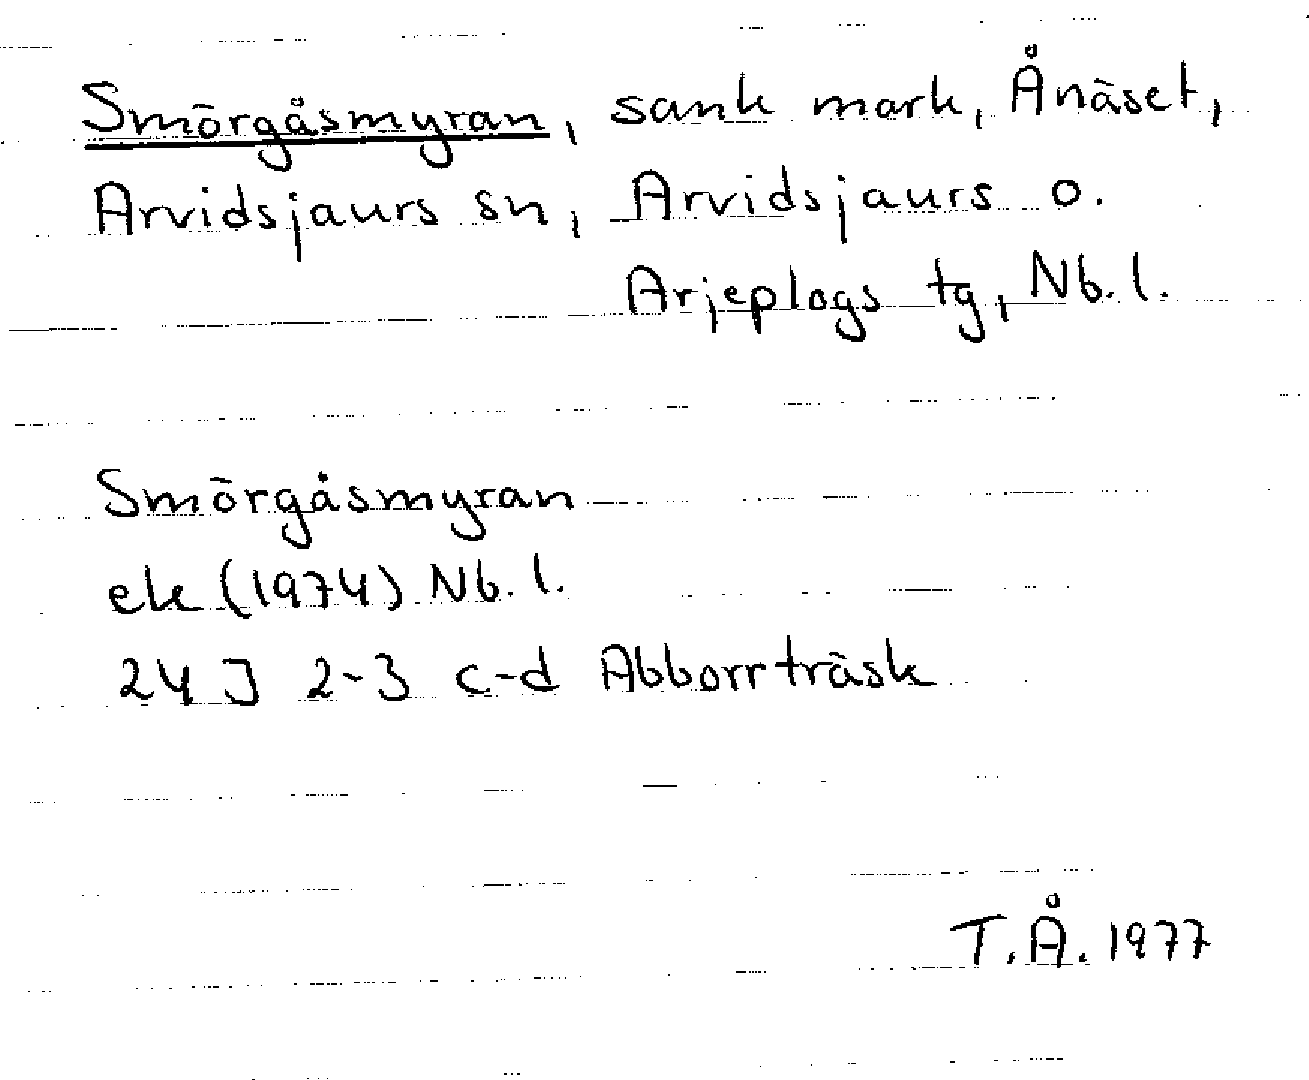 Smörgåsmyran, sank mark, Ånäset,
Arvidsjaurs sn, Arvidsjaurs o.
Arjeplogs tg, Nb. l.
Smörgåsmyran
ek (1974) Nb. l.
24 J 2-3 c-d Abborrträsk
T.Å. 1977